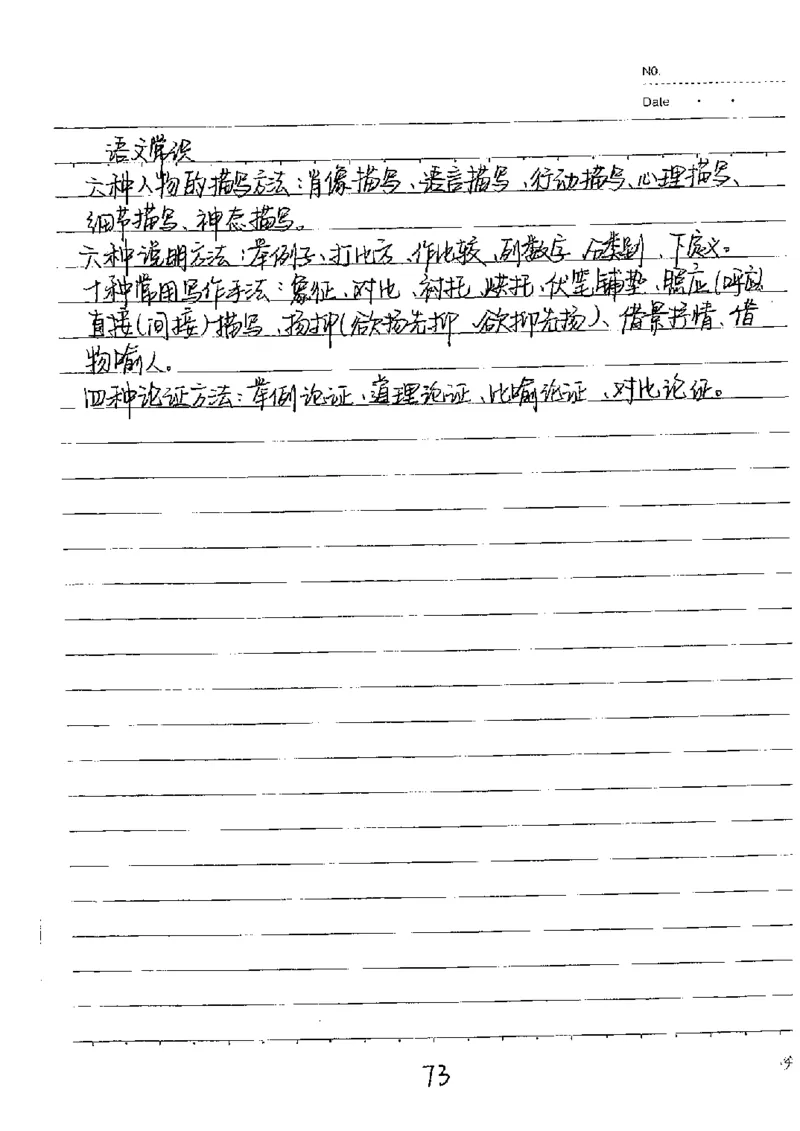 NO.
Date
语文常识
六种人物的描写方法:肖像描写、语言描写、行动描写、心理描写、
细节描写、神态描写。
六种说明方法:举例子、打比方、作比较、列数字、分类别、下定义。
十种常用写作手法:象征、对比、衬托、烘托、伏笔铺垫、照应(呼应)
直接(间接)描写、扬抑(欲扬先抑、欲抑先扬)、借景抒情、借
物喻人。
四种论证方法:举例论证、道理论证、比喻论证、对比论证。
73